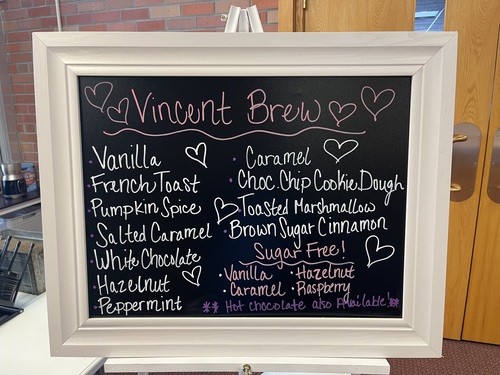 Vincent Brew
Vanilla
French Toast
Pumpkin Spice
Salted Caramel
White Chocolate
Hazelnut
Peppermint
Caramel
Choc. Chip Cookie Dough
Toasted Marshmallow
Brown Sugar Cinnamon
Sugar Free!
• Vanilla • Hazelnut
• Caramel • Raspberry
** Hot chocolate also Available! **